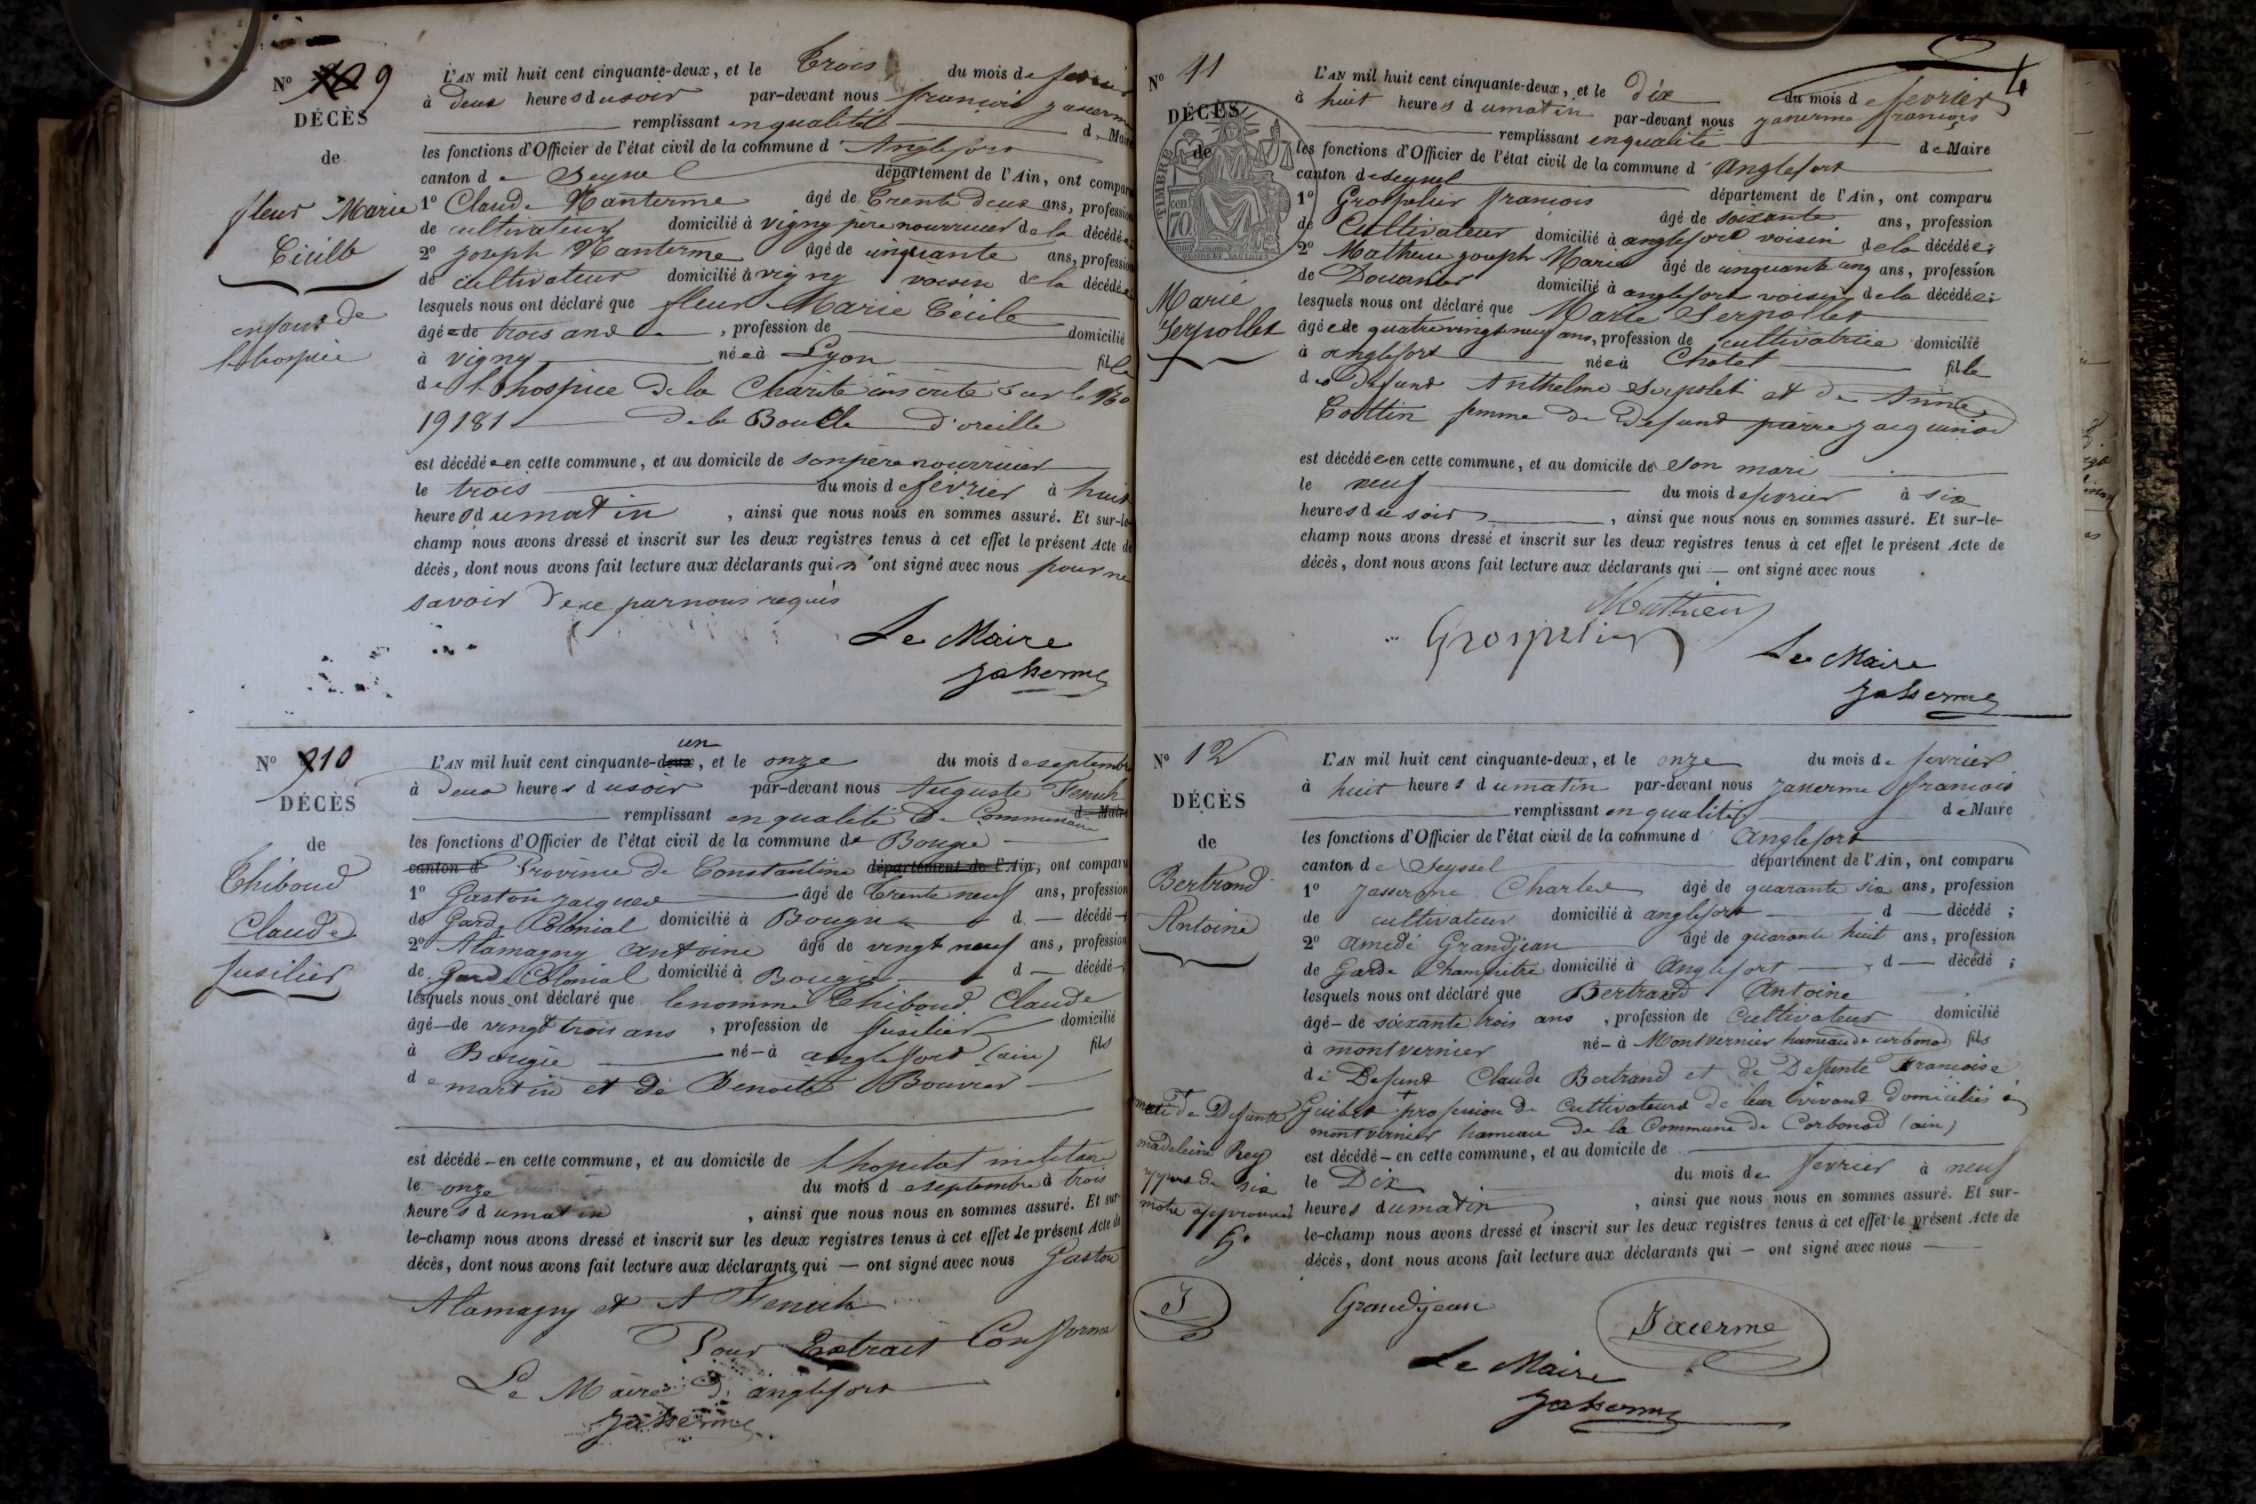 N° 9
DÉCÈS
de
fleur Marie
Cécille
enfant de
l'hospice
L'AN mil huit cent cinquante-deux, et le Trois du mois de fevrier
à Deux heures du soir par-devant nous françois
remplissant en qualité de Maire
les fonctions d'Officier de l'état civil de la commune d'Anglefort
canton de Seyssel département de l'Ain, ont comparu
1° Claude Nanterme âgé de Trente deux ans, profession
de cultivateur domicilié à vigny père nourricier de la décédée
2° joseph Nanterme âgé de cinquante ans, profession
de cultivateur domicilié à vigny voisin de la décédée
lesquels nous ont déclaré que fleur Marie Cécile
âgée de trois ans, profession de domicilié
à vigny née à Lyon fille
de l'hospice de la Charité inscrite sur le No
19181 de la Boucle d'oreille
est décédée en cette commune, et au domicile de son père nourricier
le trois du mois de fevrier à huit
heures du matin, ainsi que nous nous en sommes assuré. Et sur-le-
champ nous avons dressé et inscrit sur les deux registres tenus à cet effet le présent Acte de
décès, dont nous avons fait lecture aux déclarants qui n'ont signé avec nous pour ne
savoir de ce par nous requis
Le Maire
N° 10
DÉCÈS
de
Thiboud
Claude
fusilier
L'AN mil huit cent cinquante-deux un, et le onze du mois de septembre
à Deux heures du soir par-devant nous Auguste
remplissant en qualité de Commissaire d Maire
les fonctions d'Officier de l'état civil de la commune de Bougie
canton d Province de Constantine département de l'Ain, ont comparu
1° Gaston jacques âgé de Trente neuf ans, profession
de Garde Colonial domicilié à Bougie d — décédé
2° Alamagny antoine âgé de vingt neuf ans, profession
de Garde Colonial domicilié à Bougie d — décédé
lesquels nous ont déclaré que le nommé Thiboud Claude
âgé de vingt trois ans, profession de fusilier domicilié
à Bougie né à anglefort (ain) fils
de martin et de Benoite Bouvier
est décédé en cette commune, et au domicile de l'hopital militaire
le onze du mois de septembre à trois
heures du matin, ainsi que nous nous en sommes assuré. Et sur-
le-champ nous avons dressé et inscrit sur les deux registres tenus à cet effet le présent Acte de
décès, dont nous avons fait lecture aux déclarants qui — ont signé avec nous Gaston
Alamagny et A
Pour Extrait Conforme
Le Maire d'anglefort
4
N° 11
DÉCÈS
de
TIMBRE
70
Marie
Serpollet
L'AN mil huit cent cinquante-deux, et le dix du mois de fevrier
à huit heures du matin par-devant nous françois
remplissant en qualité de Maire
les fonctions d'Officier de l'état civil de la commune d'Anglefort
canton de seyssel département de l'Ain, ont comparu
1° Grospelier françois âgé de soixante ans, profession
de Cultivateur domicilié à anglefort voisin de la décédée;
2° Mathieu joseph Marie âgé de cinquante cinq ans, profession
de Douanier domicilié à anglefort voisin de la décédée;
lesquels nous ont déclaré que Marie Serpollet
âgée de quatre vingt neuf ans, profession de cultivatrice domicilié
à anglefort née à Chatel fille
de defunt Anthelme Serpolet et de Anne
Cottin femme de Defunt pierre jacquinod
est décédée en cette commune, et au domicile de son mari
le neuf du mois de fevrier à six
heures du soir, ainsi que nous nous en sommes assuré. Et sur-le-
champ nous avons dressé et inscrit sur les deux registres tenus à cet effet le présent Acte de
décès, dont nous avons fait lecture aux déclarants qui — ont signé avec nous
Mathieu
Grospelier
Le Maire
N° 12
DÉCÈS
de
Bertrand
Antoine
L'AN mil huit cent cinquante-deux, et le onze du mois de fevrier
à huit heures du matin par-devant nous françois
remplissant en qualité de Maire
les fonctions d'Officier de l'état civil de la commune d'anglefort
canton de Seyssel département de l'Ain, ont comparu
1° Charles âgé de quarante six ans, profession
de cultivateur domicilié à anglefort d — décédé;
2° amedé Grandjean âgé de quarante huit ans, profession
de Garde Champêtre domicilié à Anglefort d — décédé;
lesquels nous ont déclaré que Bertrand Antoine
âgé de soixante trois ans, profession de Cultivateur domicilié
à montvernier né à Montvernier hameau de corbonod fils
de Defunt Claude Bertrand et de Defunte Francoise
Guibert + profession de Cultivateurs de leur vivant domiciliés à
montvernier hameau de la Commune de Corbonod (ain)
est décédé en cette commune, et au domicile de
le Dix du mois de fevrier à neuf
heures du matin, ainsi que nous nous en sommes assuré. Et sur-
le-champ nous avons dressé et inscrit sur les deux registres tenus à cet effet le présent Acte de
décès, dont nous avons fait lecture aux déclarants qui — ont signé avec nous
+ mari de Defunte
madeleine Rey
de six
mots approuvés
G.
J
Grandjean
Le Maire